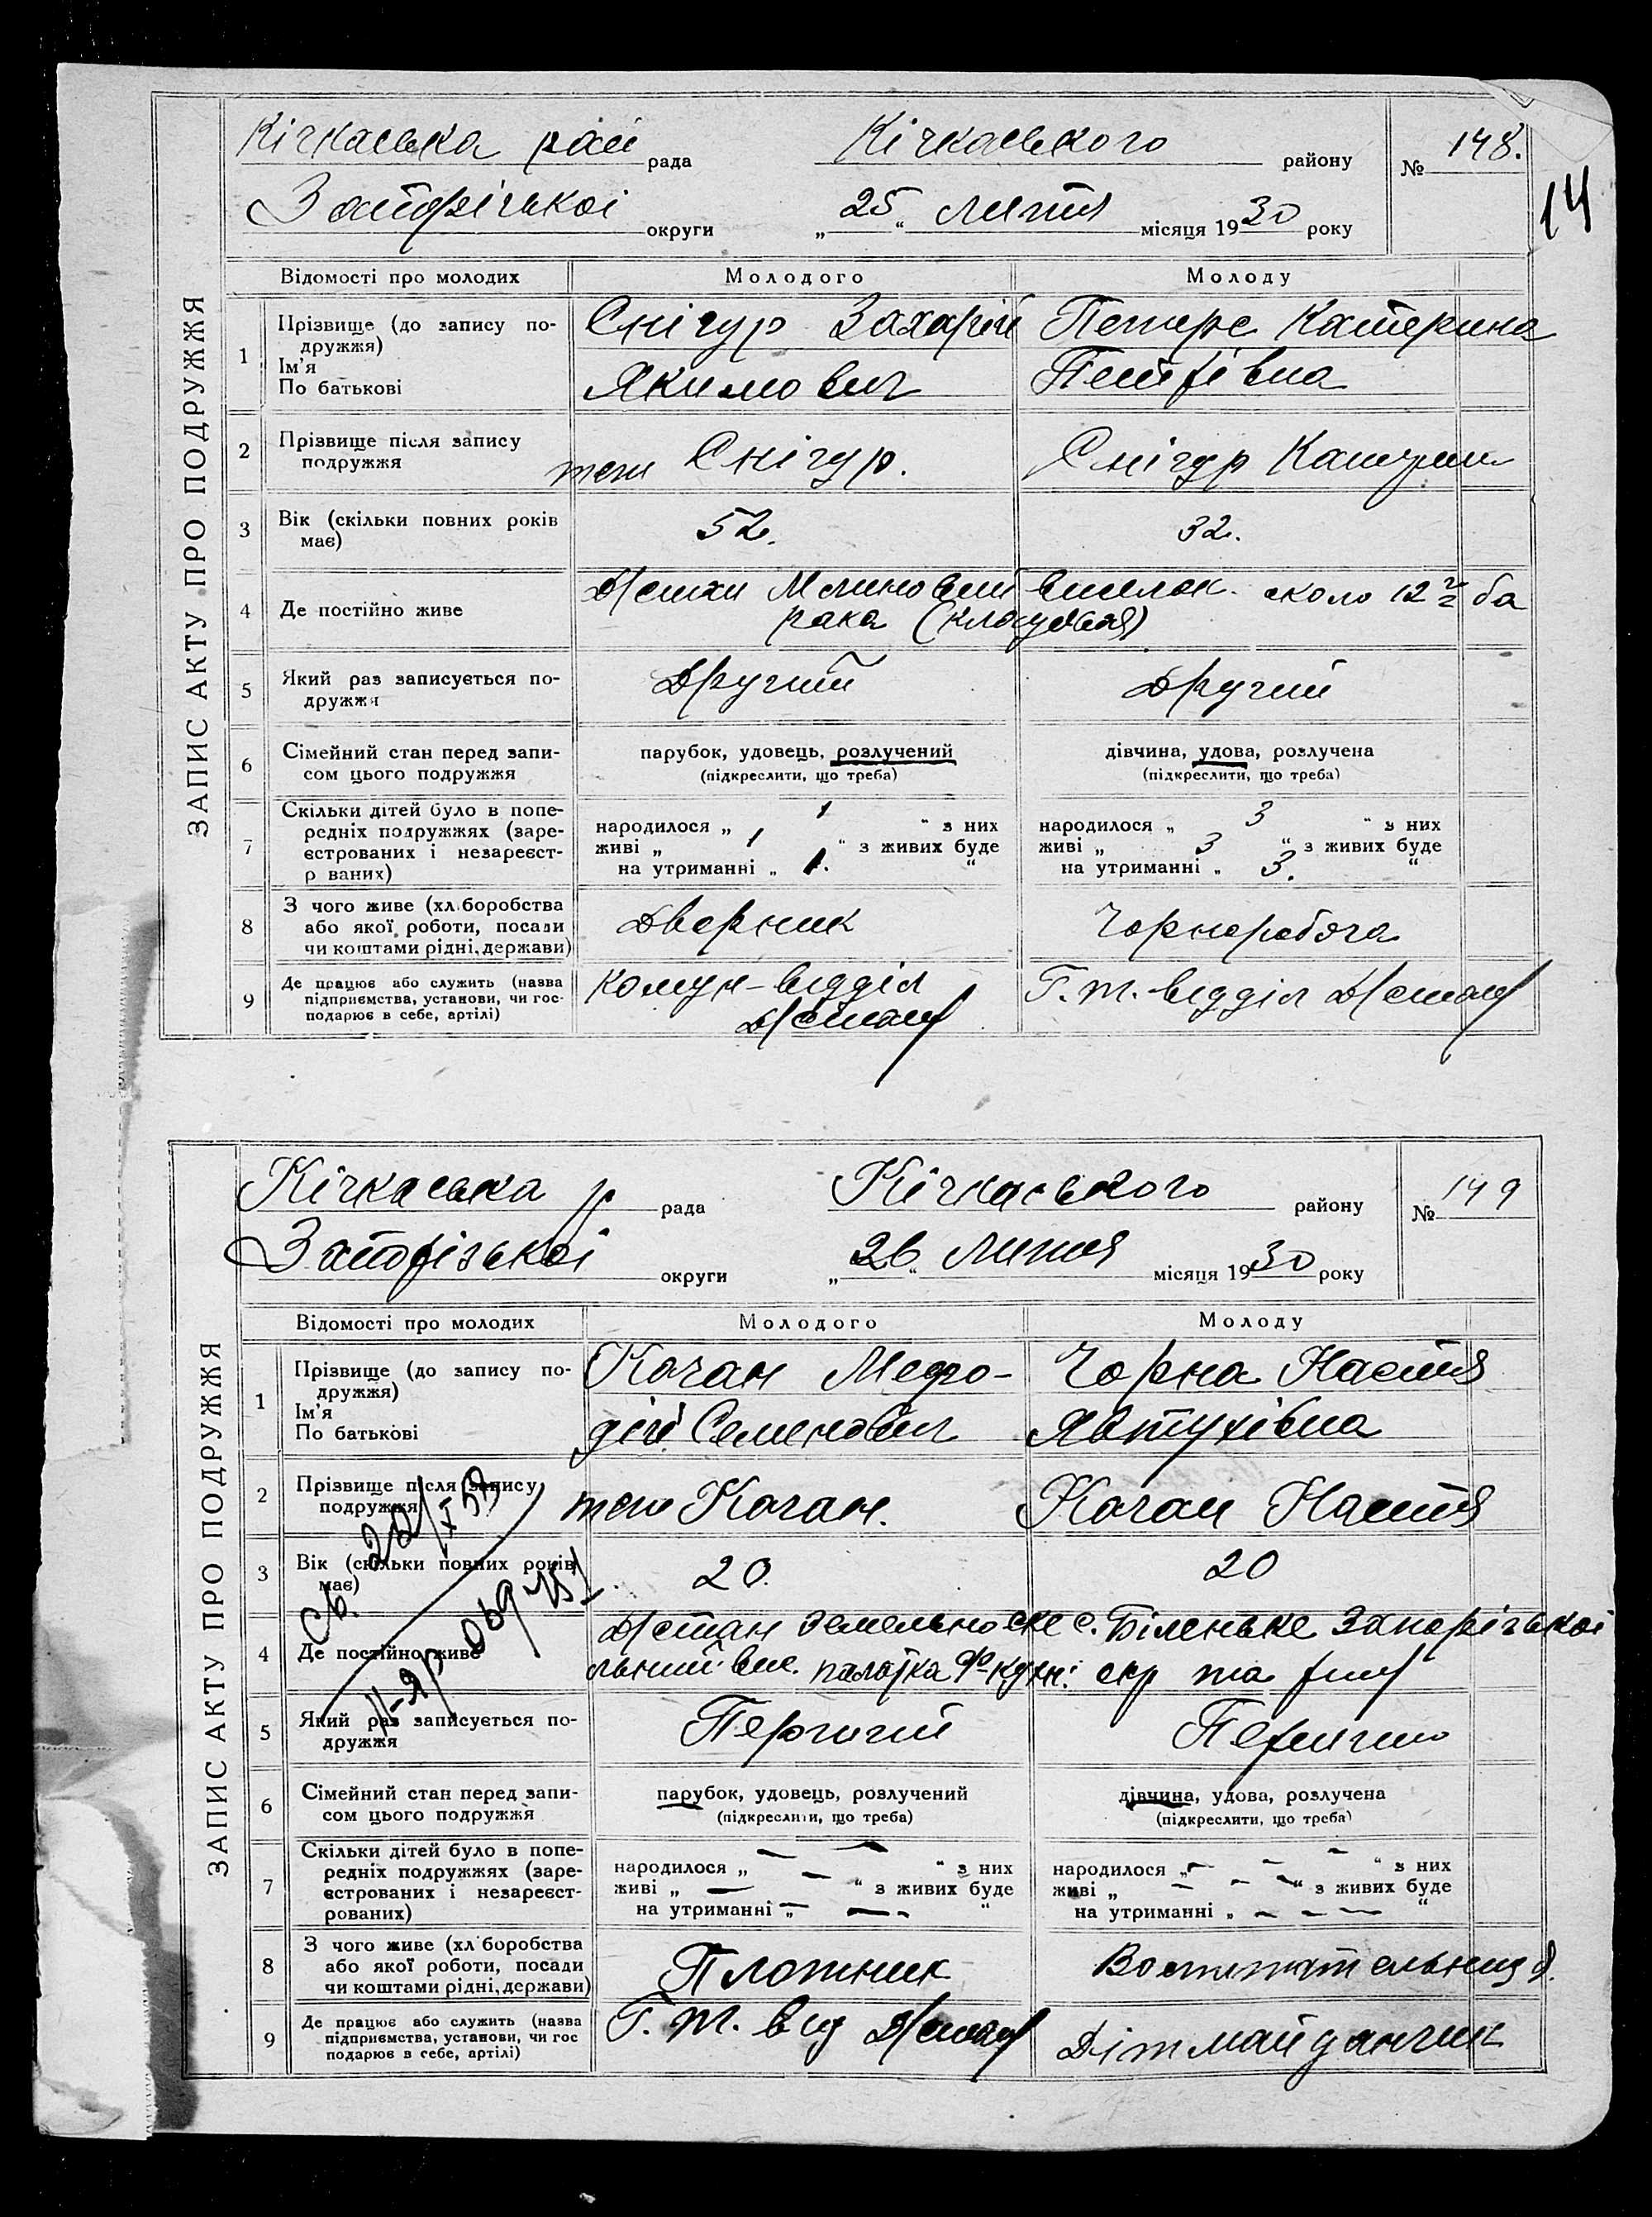 Кічкаська рай рада Кічкаського району № 148.
14
Запорізької округи „25“ липня місяця 1930 року
ЗАПИС АКТУ ПРО ПОДРУЖЖЯ
Відомості про молодих Молодого Молоду
1 Прізвище (до запису по- Снігур Захарій Петерс Катерина
дружжя)
Ім'я
По батькові Якимович Петрівна
2 Прізвище після запису
подружжя теж Снігур. Снігур Катерина
3 Вік (скільки повних років
має) 52. 32.
4 Де постійно живе Млиновий виселок. около 12 ба
рака
5 Який раз записується по-
дружжя Другий Другий
6 Сімейний стан перед запи- парубок, удовець, розлучений дівчина, удова, розлучена
сом цього подружжя (підкреслити, що треба) (підкреслити, що треба)
7 Скільки дітей було в попе-
редніх подружжях (заре- народилося „ 1 “ з них народилося „ 3 “ з них
єстрованих і незареєст- живі „ 1 “ з живих буде живі „ 3 “ з живих буде
р ваних) на утриманні „ 1. “ на утриманні „ 3. “
8 З чого живе (хліборобства
або якої роботи, посади Дворник Чорноробоча
чи коштами рідні, держави)
9 Де працює або служить (назва комун-відділ Г.т. відділ
підприємства, установи, чи гос-
подарює в себе, артілі)
Кічкаська р рада Кічкаського району № 149
Запорізької округи „26“ липня місяця 1930 року
ЗАПИС АКТУ ПРО ПОДРУЖЖЯ
Відомості про молодих Молодого Молоду
1 Прізвище (до запису по- Качан Мефо- Чорна Настя
дружжя)
Ім'я
По батькові дій Семенович Явтухівна
2 Прізвище після запису
подружжя теж Качан. Качан Настя
3 Вік (скільки повних років
має) 20. 20
4 Де постійно живе с. Біленьке Запорізької
палатка окр та рай
5 Який раз записується по-
дружжя Перший Перший
6 Сімейний стан перед запи- парубок, удовець, розлучений дівчина, удова, розлучена
сом цього подружжя (підкреслити, що треба) (підкреслити, що треба)
7 Скільки дітей було в попе-
редніх подружжях (заре- народилося „ — “ з них народилося „ — “ з них
єстрованих і незареєст- живі „ — “ з живих буде живі „ — “ з живих буде
рованих) на утриманні „ — “ на утриманні „ — “
8 З чого живе (хліборобства
або якої роботи, посади Плотник Воспитательниця
чи коштами рідні, держави)
9 Де працює або служить (назва Г.т. від Дітмайданчик
підприємства, установи, чи гос
подарює в себе, артілі)